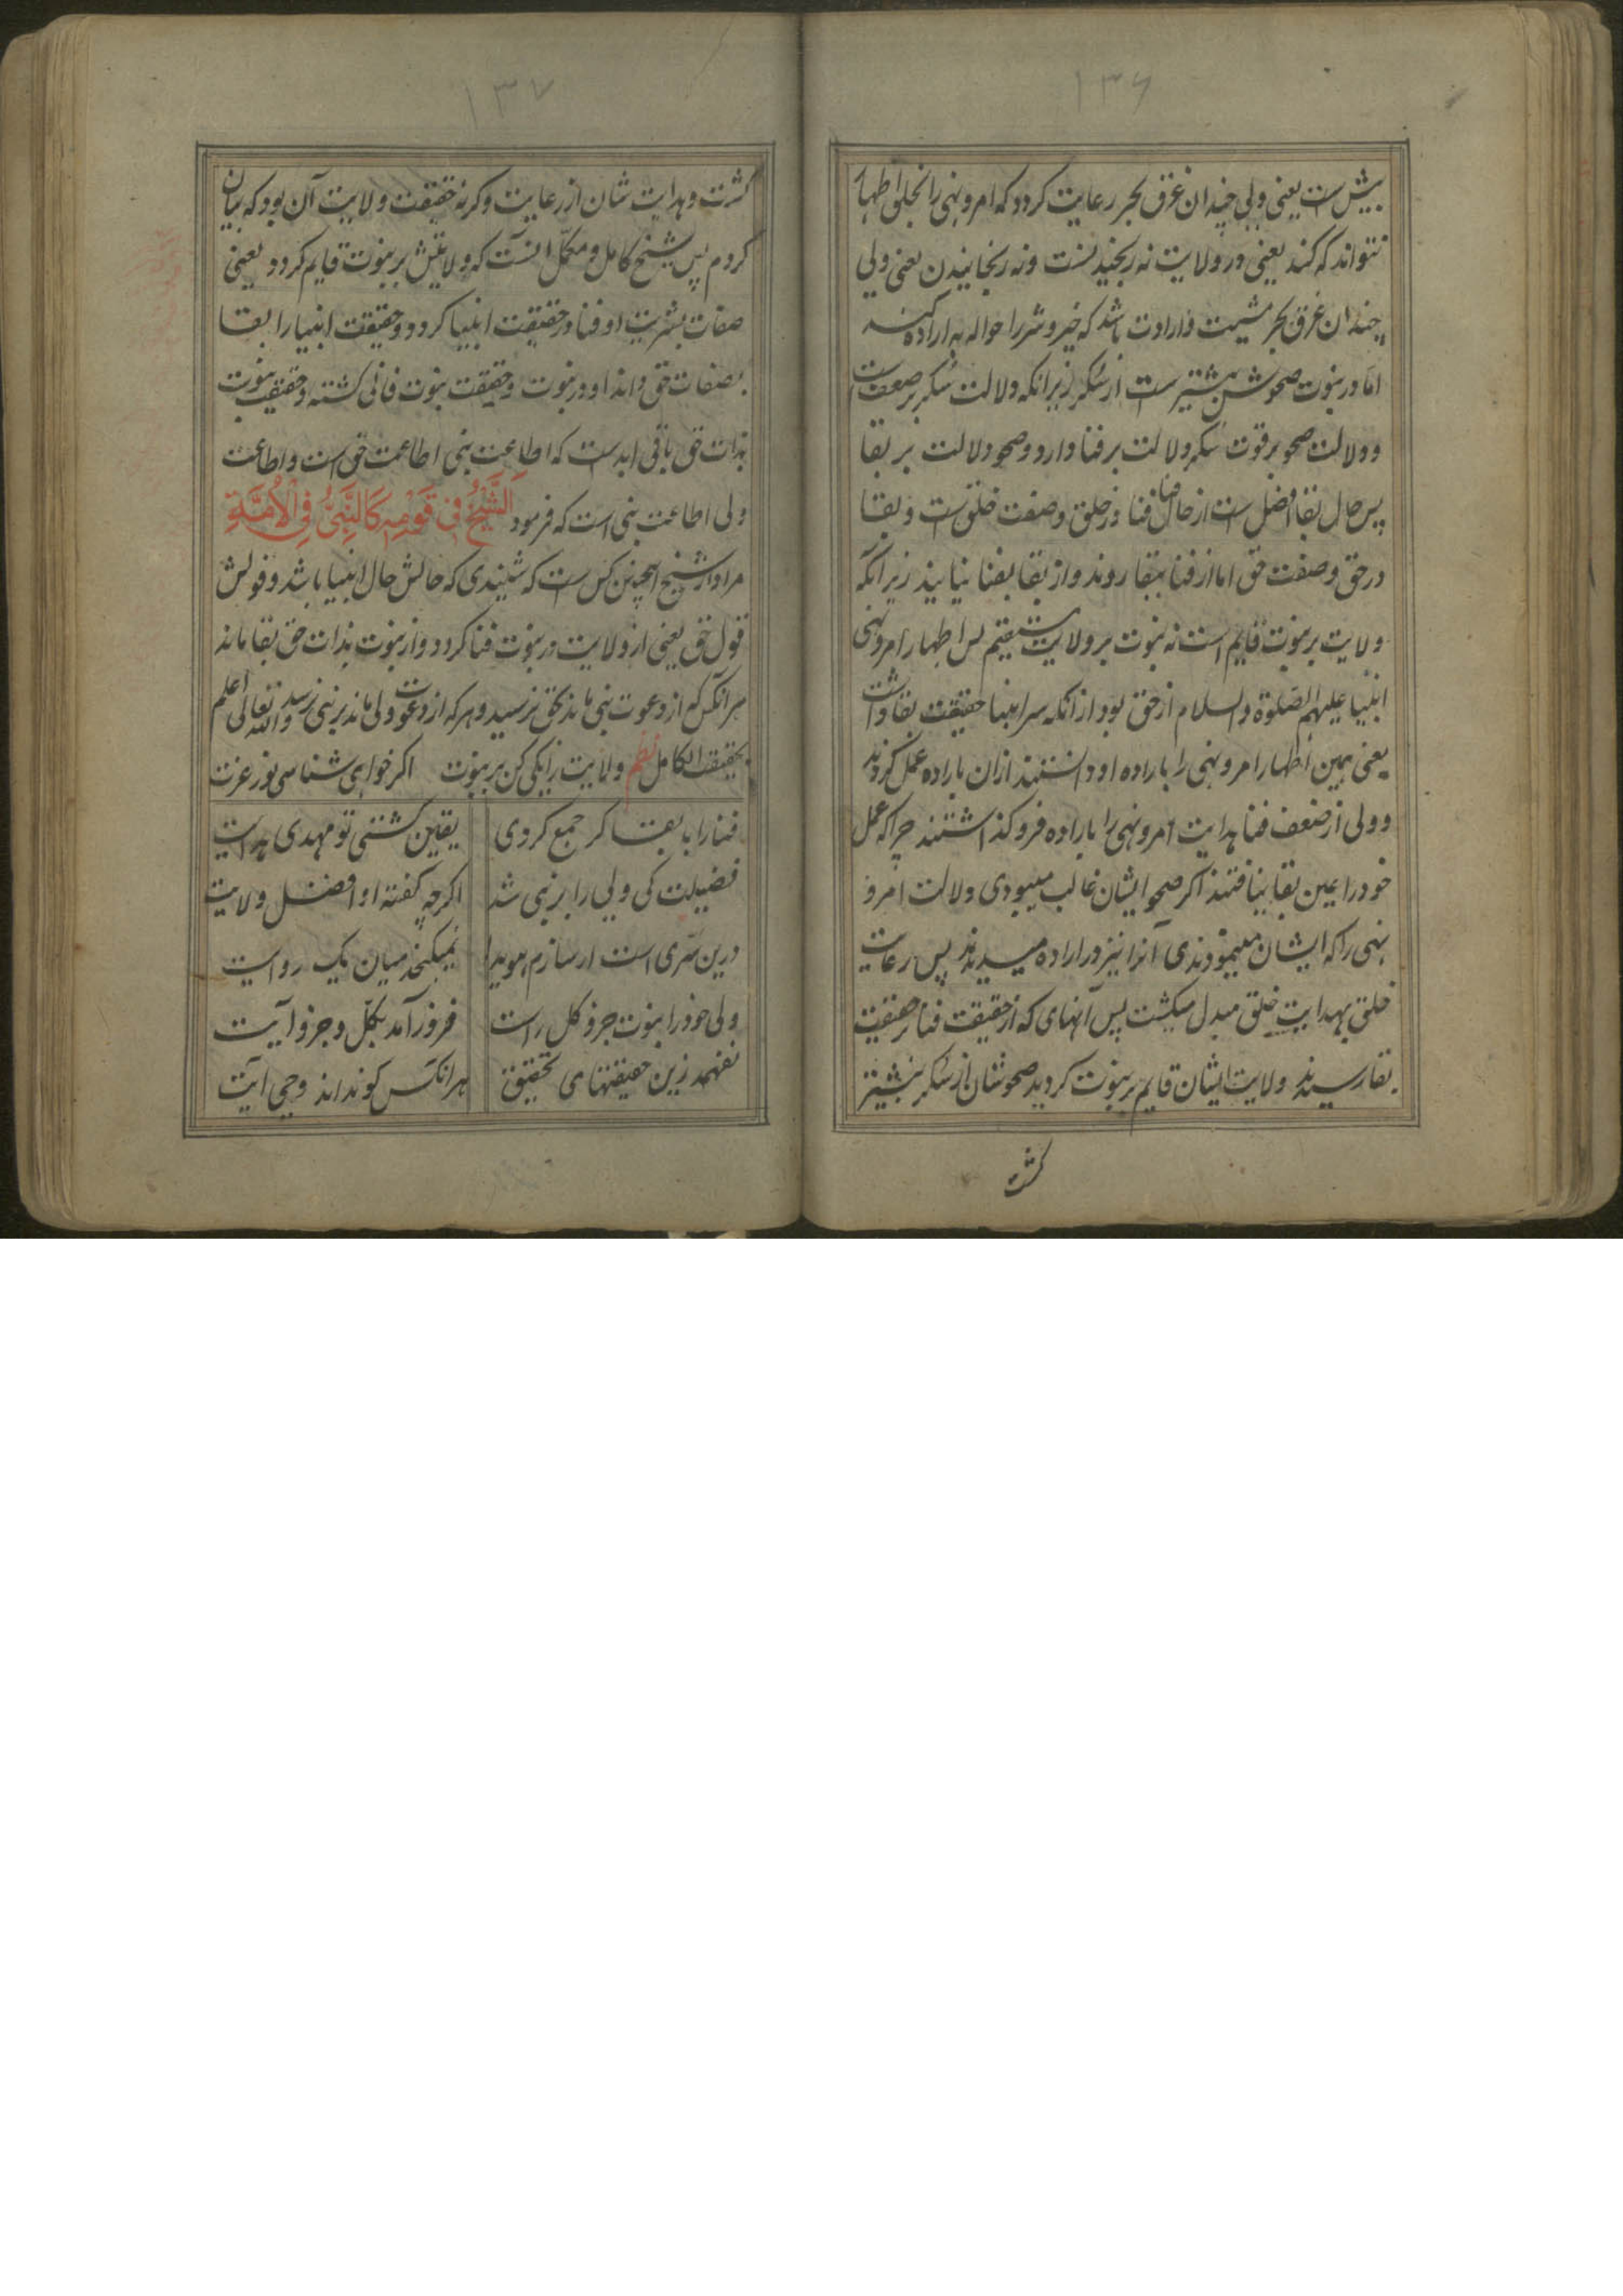 ۱۳۶
بیش است یعنی ولی چندان غرق بحر رعایت کردد که امر و نهی را بخلق اظهار
نتواند که کند یعنی در ولایت نه رنجیدنست و نه رنجانیدن یعنی ولی
چندان غرق بحر مشیت و ارادت باشد که خیر و شر را حواله به اراده کند
اما در نبوت صحوش بیشتر است از سکر زیرانکه دلالت سکر بر ضعف است
و دلالت صحو بر قوت سکر دلالت بر فنا دارد و صحو دلالت بر بقا
پس حال بقا افضل است از حال فنا فنا در خلق و صفت خلق است و بقا
در حق و صفت حق اما از فنا ببقا روند و از بقا بفنا نیایند زیرانکه
ولایت بر نبوت قایم است نه نبوت بر ولایت مستقیم پس اظهار امر و نهی
انبیا علیهم الصلوة والسلام از حق بود از انکه سر انبیا حقیقت بقا داشت
یعنی بهمین اظهار امر و نهی را باراده او دانستند ازان باراده عمل کردند
و ولی از ضعف فنا هدایت امر و نهی را باراده فرو کذاشتند چرا که عمل
خود را عین بقا نیافتند اکر صحو ایشان غالب میبودی دلالت امر و
نهی را که ایشان مینمودندی آنرا نیز در اراده میدیدند پس رعایت
خلق بهدایت خلق مبدل میکشت پس آنهای که از حقیقت فنا در حقیقت
بقا رسیدند ولایت ایشان قایم بر نبوت کردید صحوشان از سکر بیشتر
کشت
۱۳۷
کشت و هدایت شان از رعایت و کرنه حقیقت ولایت آن بود که بیان
کردم پس شیخ کامل و مکمّل آنست که ولایتش بر نبوت قایم کردد یعنی
صفات بشریت او فنا در حقیقت انبیا کردد و حقیقت انبیا را بقا
بصفات حق داند او در نبوت و حقیقت نبوت فانی کشته و حقیقت نبوت
بذات حق باقی ابد است که اطاعت نبی اطاعت حق است و اطاعت
ولی اطاعت نبی است که فرمود اَلشَّیْخُ فِی قَوْمِهِ کَالنَّبِیُّ فِی الْاُمَّةِ
مراد از شیخ اینچنین کس است که شنیدی که حالش حال انبیا باشد و قولش
قول حق یعنی از ولایت در نبوت فنا کردد و از نبوت بذات حق بقا ماند
هرانکس که از دعوت نبی ماند بحق نرسید و هر که از دعوت ولی ماند بر نبی نرسد والله تعالی اعلم
بحقیقت الکامل نظم ولایت را یکی کن بر نبوت اکر خواهی شناسی نور عزت
فنا را با بقا کر جمع کردی یقین کشتی تو مهدی هدایت
فضیلت کی ولی را بر نبی شد اکرچه کفته او افضل ولایت
درین سّری است ار سازم هویدا نمیکنجد میان یک روایت
ولی خود را نبوت جزو کل راست فرود آمد بکلّ و جزو آیت
نفهمد زین حقیقتهای تحقیق هرانکس کو نداند وحی آیت